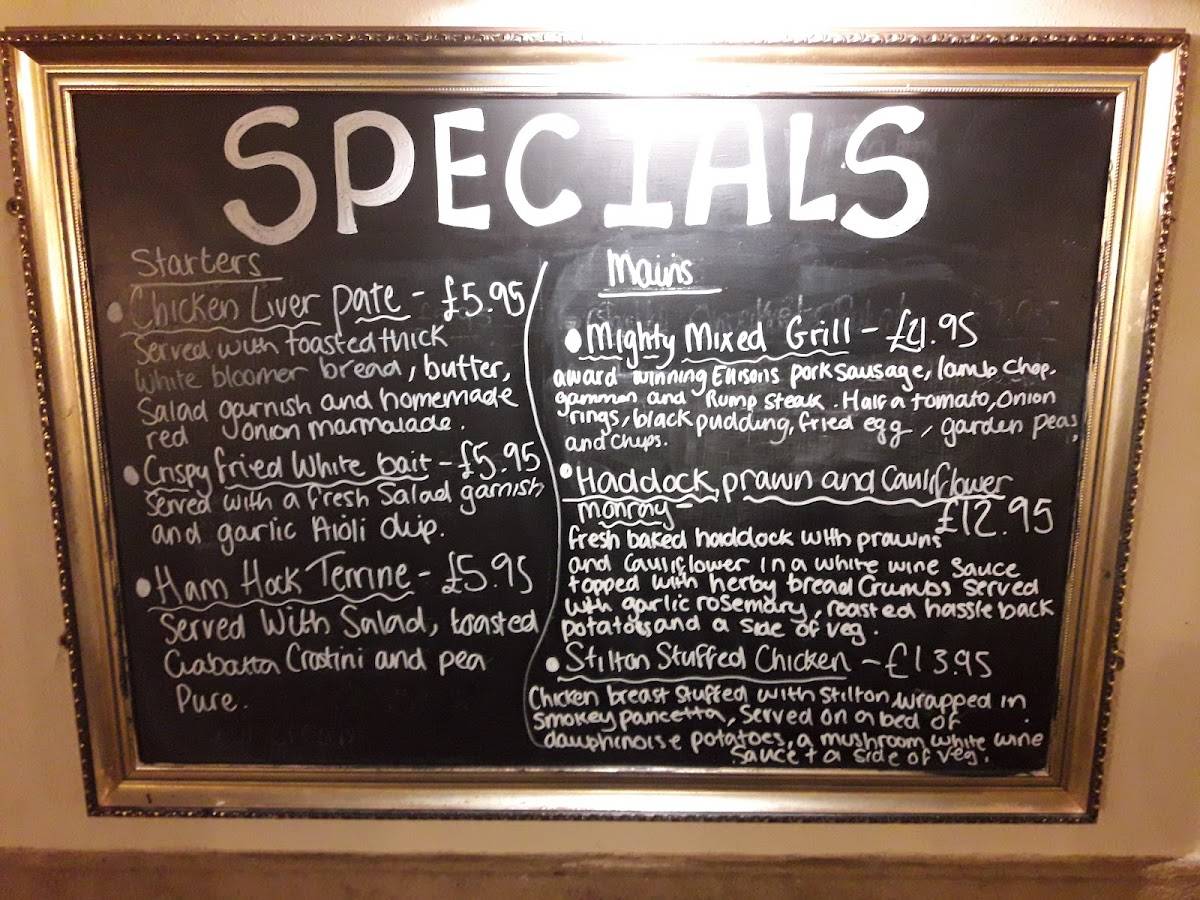 SPECIALS
Starters
Chicken Liver pate - £5.95
Served with toasted thick
White bloomer bread, butter,
Salad garnish and homemade
red onion marmalade.
Crispy fried White bait - £5.95
Served with a fresh Salad garnish
and garlic Aioli dip.
Ham Hock Terrine - £5.95
Served With Salad, toasted
Ciabatta Crostini and pea
Pure.
Mains
Mighty Mixed Grill - £21.95
award winning Ellisons pork sausage, lamb chop.
gammon and Rump steak. Half a tomato, Onion
rings, black pudding, fried egg, garden peas,
and chips.
Haddock, prawn and Cauliflower
monray -
£12.95
fresh baked haddock with prawns
and Cauliflower in a white wine sauce
topped with herby bread Crumbs served
with garlic rosemary, roasted hassle back
potatoes and a side of veg.
Stilton Stuffed Chicken - £13.95
Chicken breast stuffed with stilton, wrapped in
smokey pancetta, Served on a bed of
dauphinoise potatoes, a mushroom white wine
Sauce + a side of veg.